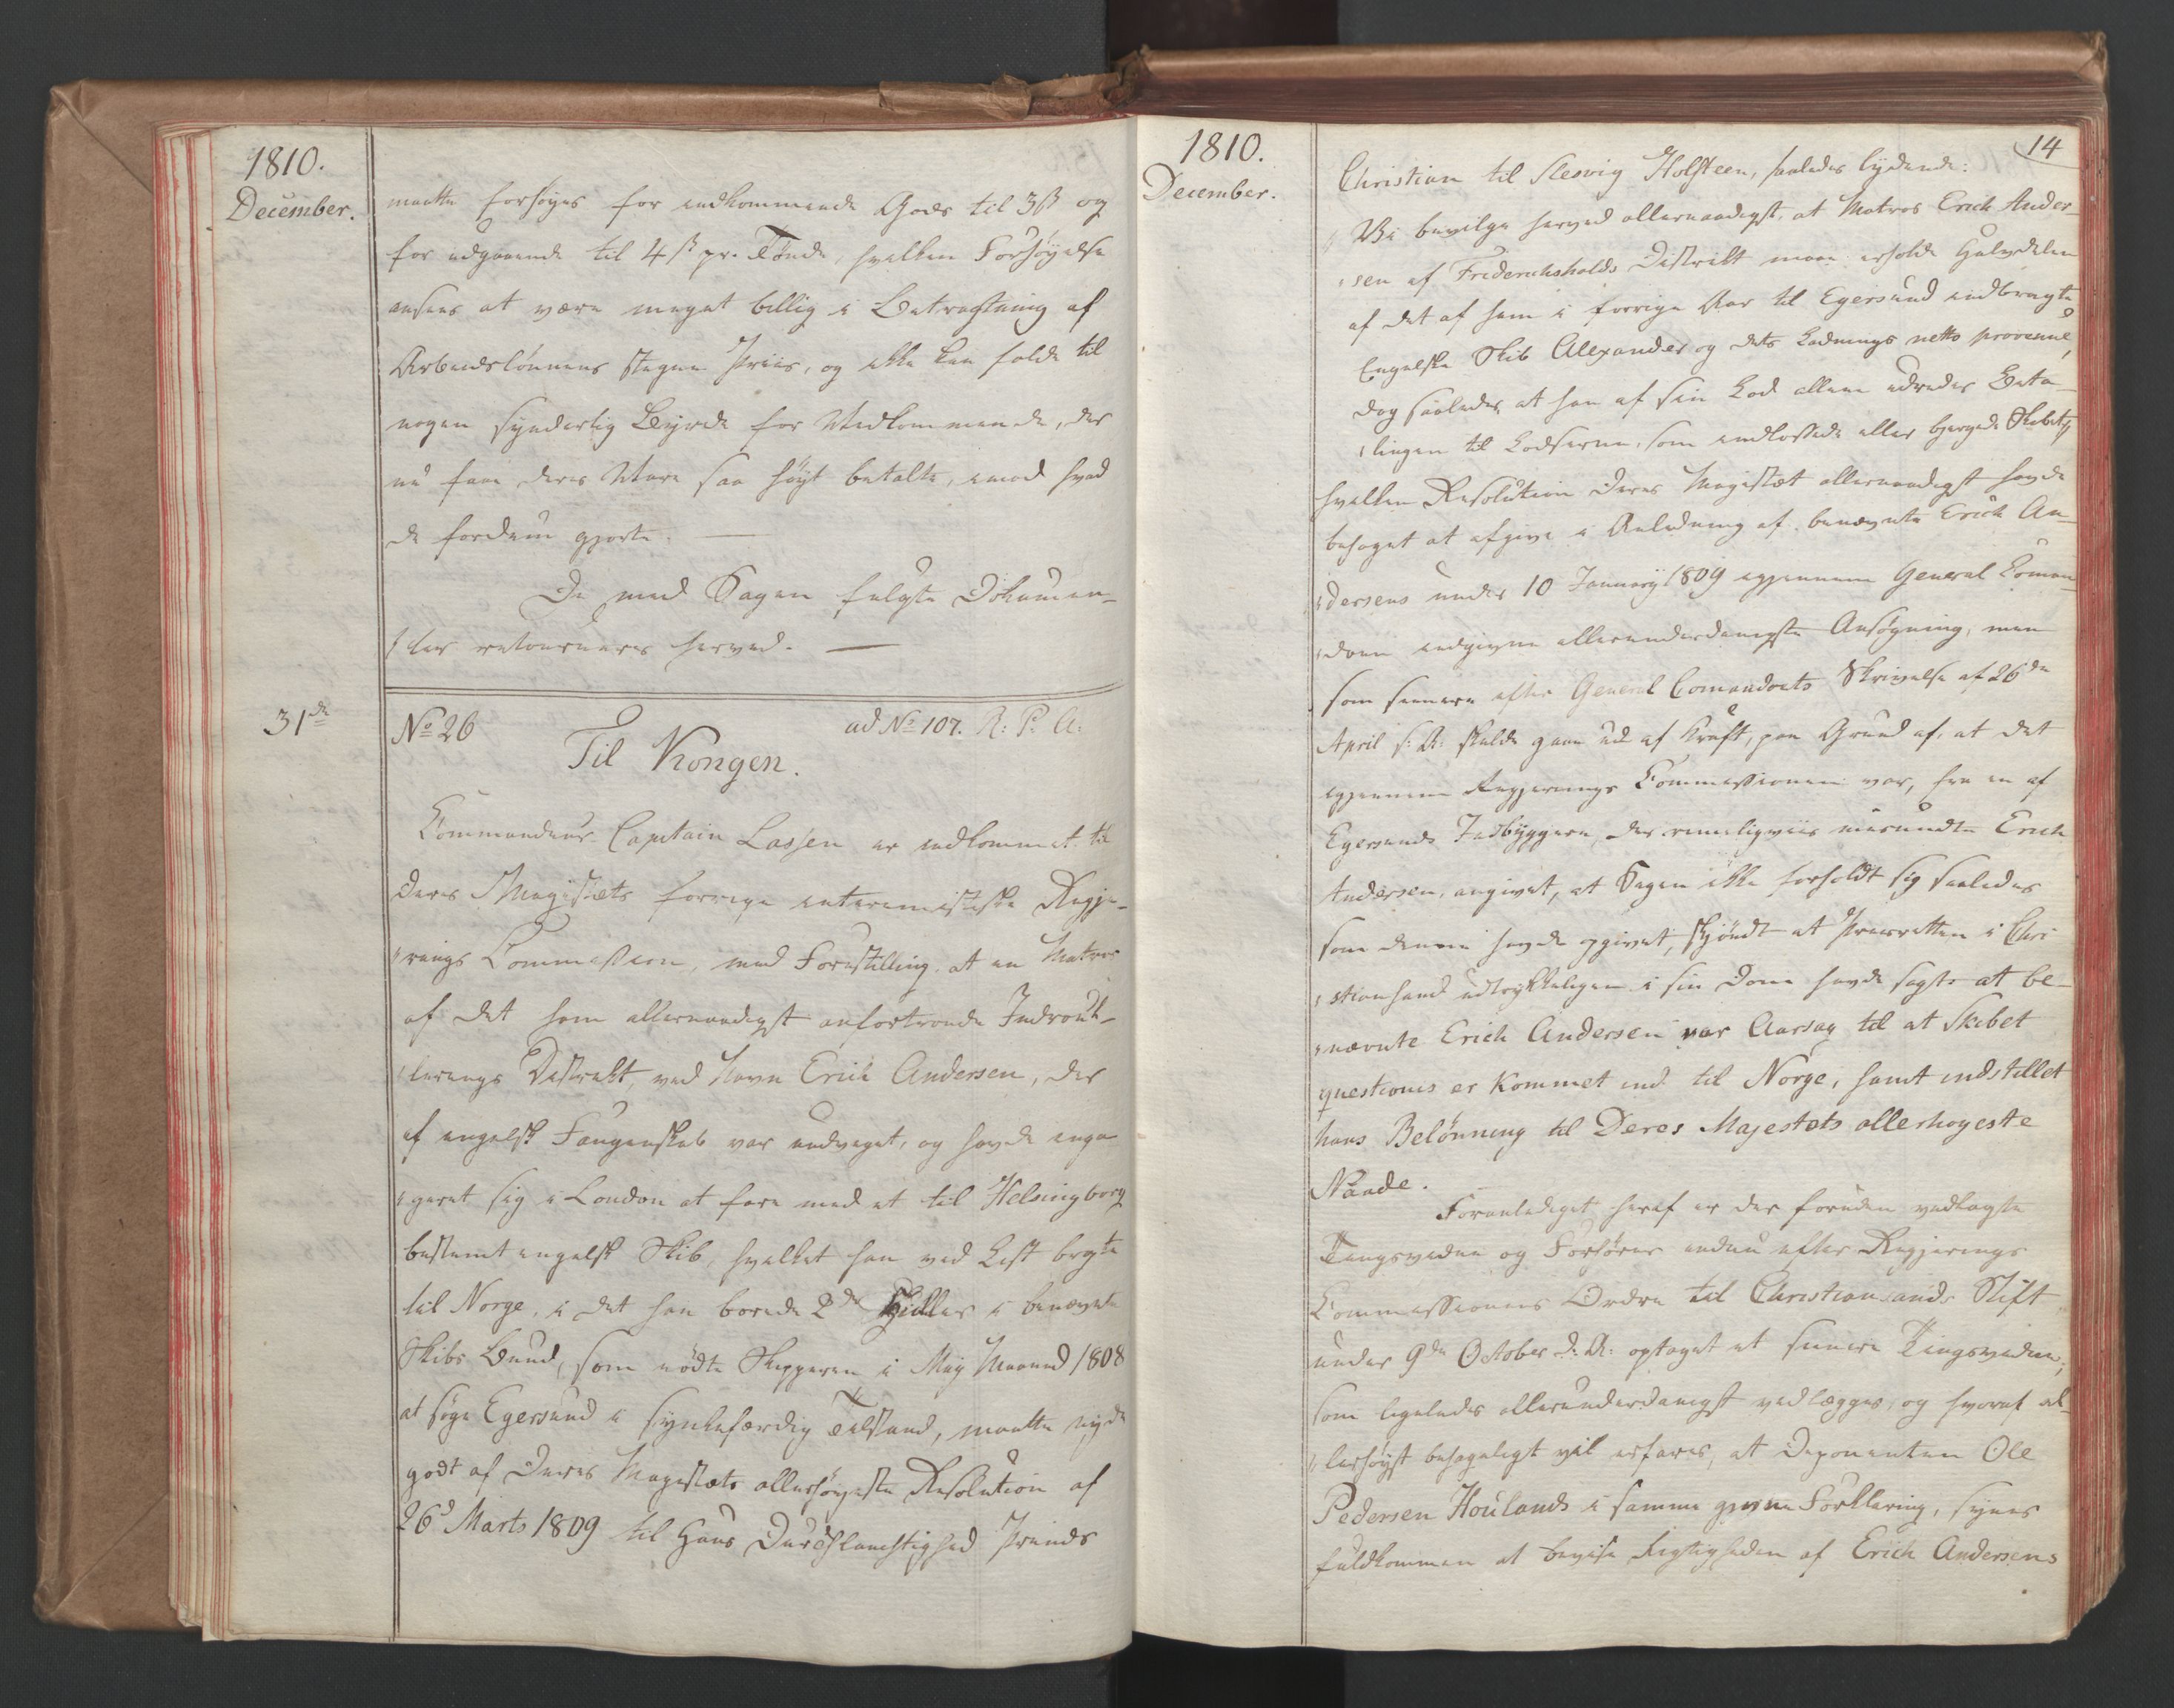 1810.
December.
maatte forhøyes for indkommende Gods til 3ß og
for udgaaende til 4ß pr. Tønde, hvilken Forhøyelse
ansees at være meget billig i Betragtning af
Arbeidslønnens stegne Priis, og ikke kan falde til
nogen synderlig Byrde for Vedkommende, der
nu faae deres Vare saa høyt betalte, imod hvad
de fordum gjorte. —
De med Sagen fulgte Dokumen-
ter retourneres herved. —
31de
No 26
ad No 107. R: P: A:
Til Kongen.
Commandeur-Capitain Lassen er indkommet til
Deres Majestæts forrige interimistiske Regje-
rings Commission, med Forestilling at en Matros
af det ham allernaadigst anfortroede Indroul-
lerings Distrikt, ved Navn Erich Andersen, der
af engelsk Fangenskab var undveget, og havde enga-
geret sig i London at fare med et til Helsingborg
bestemt engelsk Skib, hvilket han ved List bragte
til Norge, i det han borede 2de Huller i benævnte
Skibs Bund, som nødte Skipperen i May Maaned 1808
at søge Egersund i synkefærdig Tilstand, maatte nyde
godt af Deres Majestæts allerhøyeste Resolution af
26d Marts 1809 til Hans Durchlauchtighed Prinds
1810.
December.
14
Christian til Slesvig Holsteen, saaledes lydende:
Vi bevilge herved allernaadigst, at Matros Erich Ander-
sen af Friderichshalds Distrikt maae erholde Halvdelen
af det af ham i forrige Aar til Egersund indbragte
Engelske Skib Alexander og dets Ladnings netto provenue,
dog saaledes, at han af sin Lod allene udreder Beta-
lingen til Lodserne, som indlossede eller bjergede Skibet;
hvilken Resolution Deres Majestæt allernaadigst havde
behaget at afgive i Anledning af benævnte Erich An-
dersens under 10 January 1809 igjennem General Coman-
doen indgivne allerunderdanigste Ansøgning, men
som senere efter General Comandoets Skrivelse af 26de
April s: A: skulde gaae ud af Kraft, paa Grund af, at det
igjennem Regjerings Commissionen var, fra en af
Egersunds Indbyggere, der rimeligviis misundte Erich
Andersen, angivet, at Sagen ikke forholdt sig saaledes
som denne havde opgivet, skjøndt at Priseretten i Chri-
stiansand udtrykkeligen i sin Dom havde sagt at be-
nævnte Erich Andersen var Aarsag til at Skibet
questionis er kommet ind til Norge, samt indstillet
hans Belønning til Deres Majestæts allerhøyeste
Naade.
Foranlediget heraf er der foruden vedlagte
Tingsvidne og Forhører endnu efter Regjerings
Commissionens Ordre til Christiansands Stift
under 9de October d: A: optaget et senere Tingsvidne,
som ligeledes allerunderdanigst vedlægges, og hvoraf al-
lerhøyst behageligt vil erfares, at Deponenten Ole
Pedersen Houlands i samme givne Forklaring, synes
fuldkommen at bevise Rigtigheden af Erich Andersens